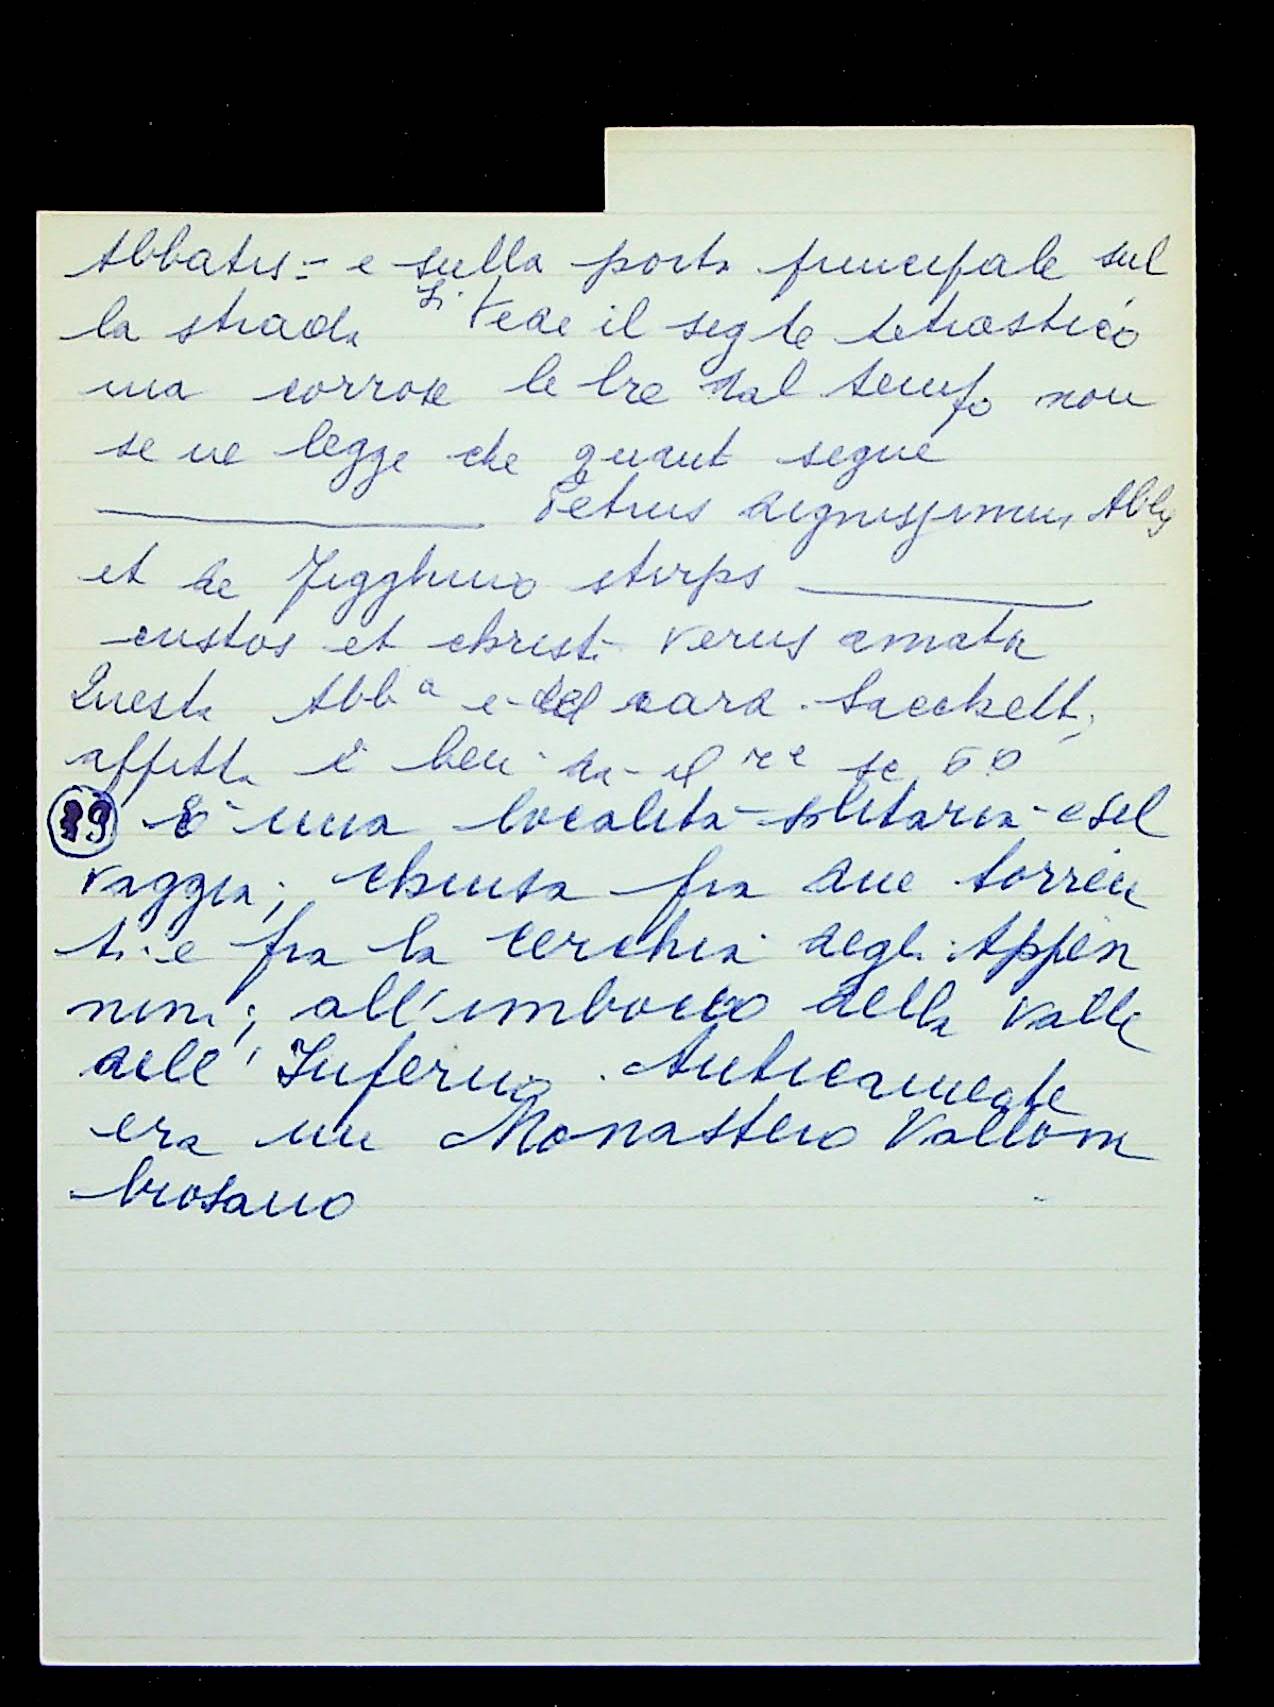 Abbatis = e sulla porta principale sul
la strada si vede il segte tetrastico
ma corrose le lre dal tempo non
se ne legge che quant segue
Petrus dignissimus Abbs
et de stirps
custos et christi verus amator
Questa Abba e del card. Sacchetti,
affitta i beni
29 E una località solitaria e sel
vaggia; chiusa fra due torren
ti e fra la cerchia degli Appen
nini; all'imbocco della Valle
dell'Inferno. Anticamente
era un Monastero Vallom
brosano